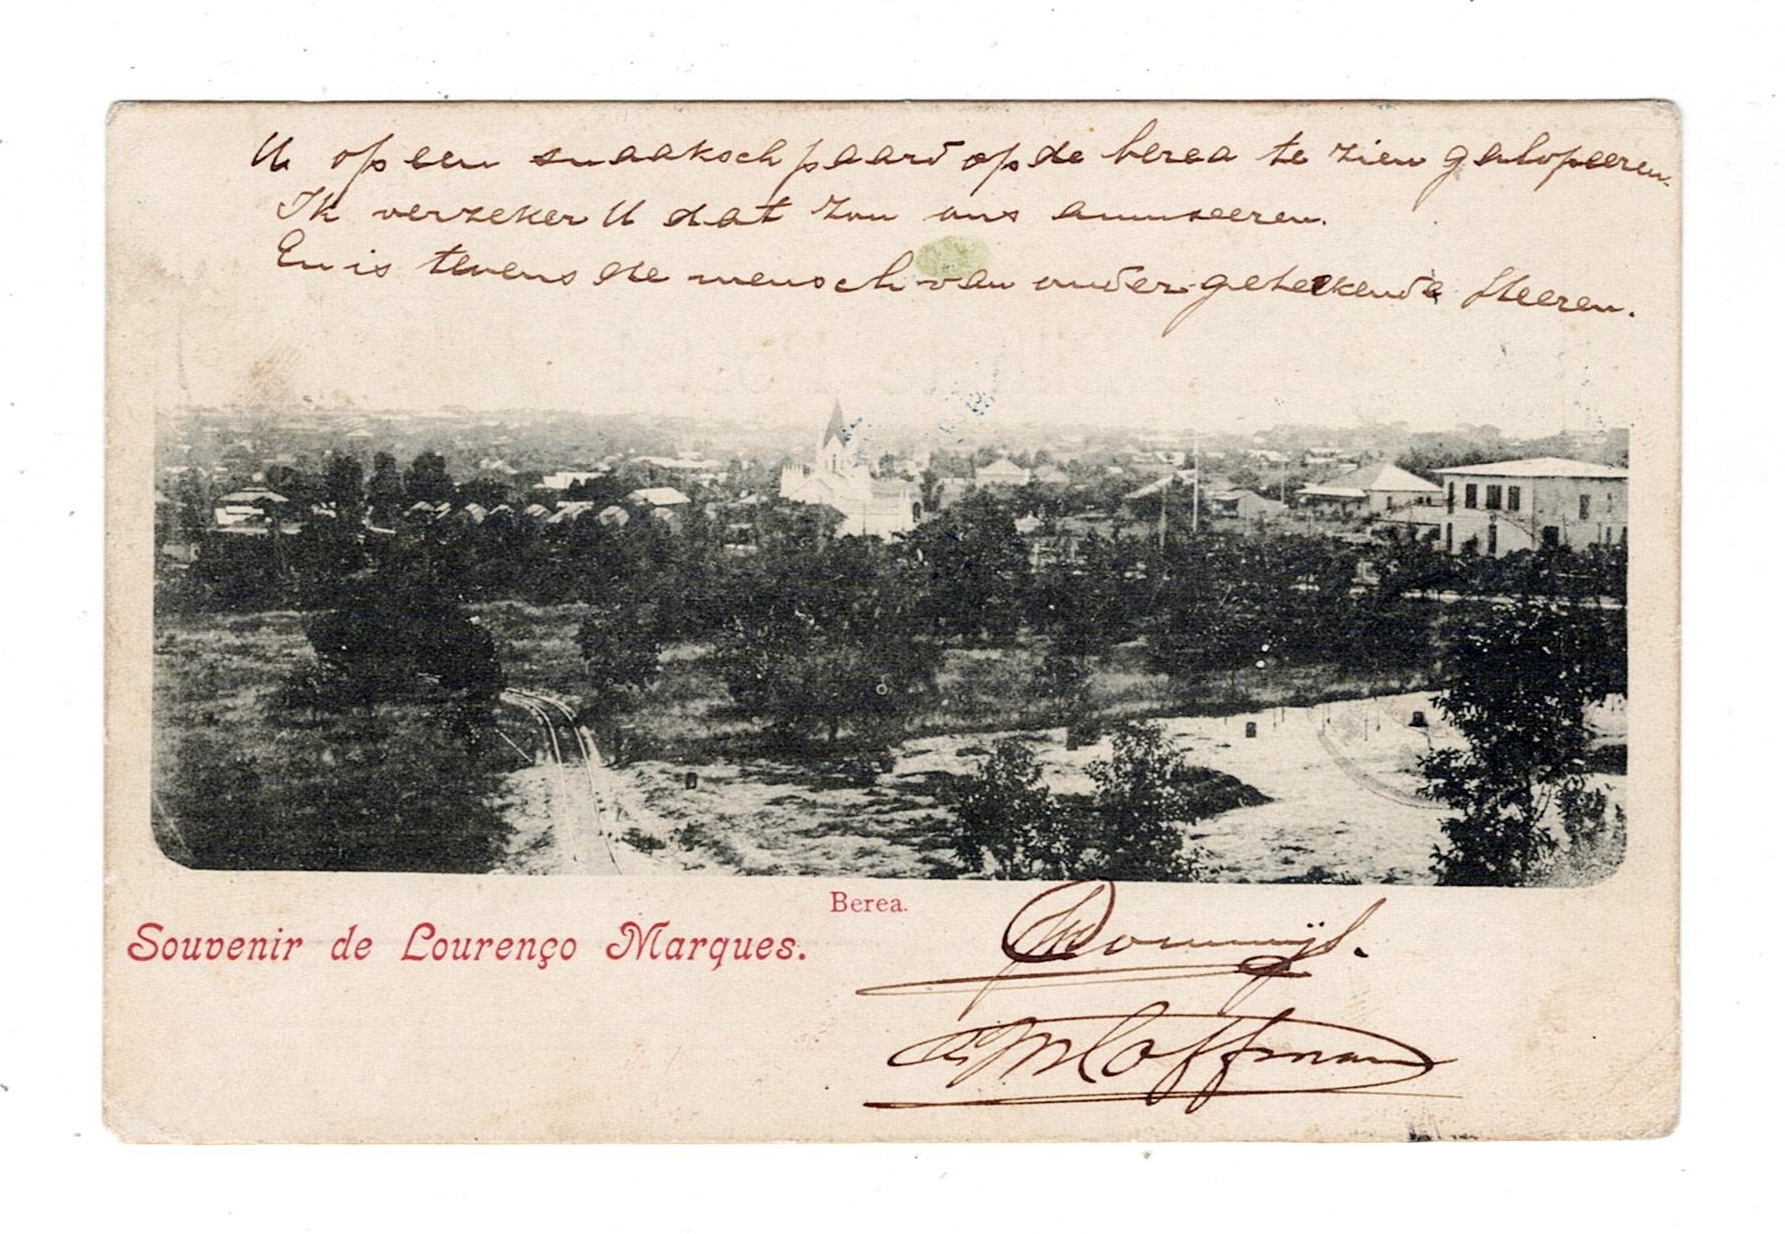 U op een snaaksch paard op de berea te zien galopeeren.
Ik verzeker U dat zou ons amuseeren.
En is tevens de mensch van ondergeteekende Heeren.
Berea.
Souvenir de Lourenço Marques.
Hoffman